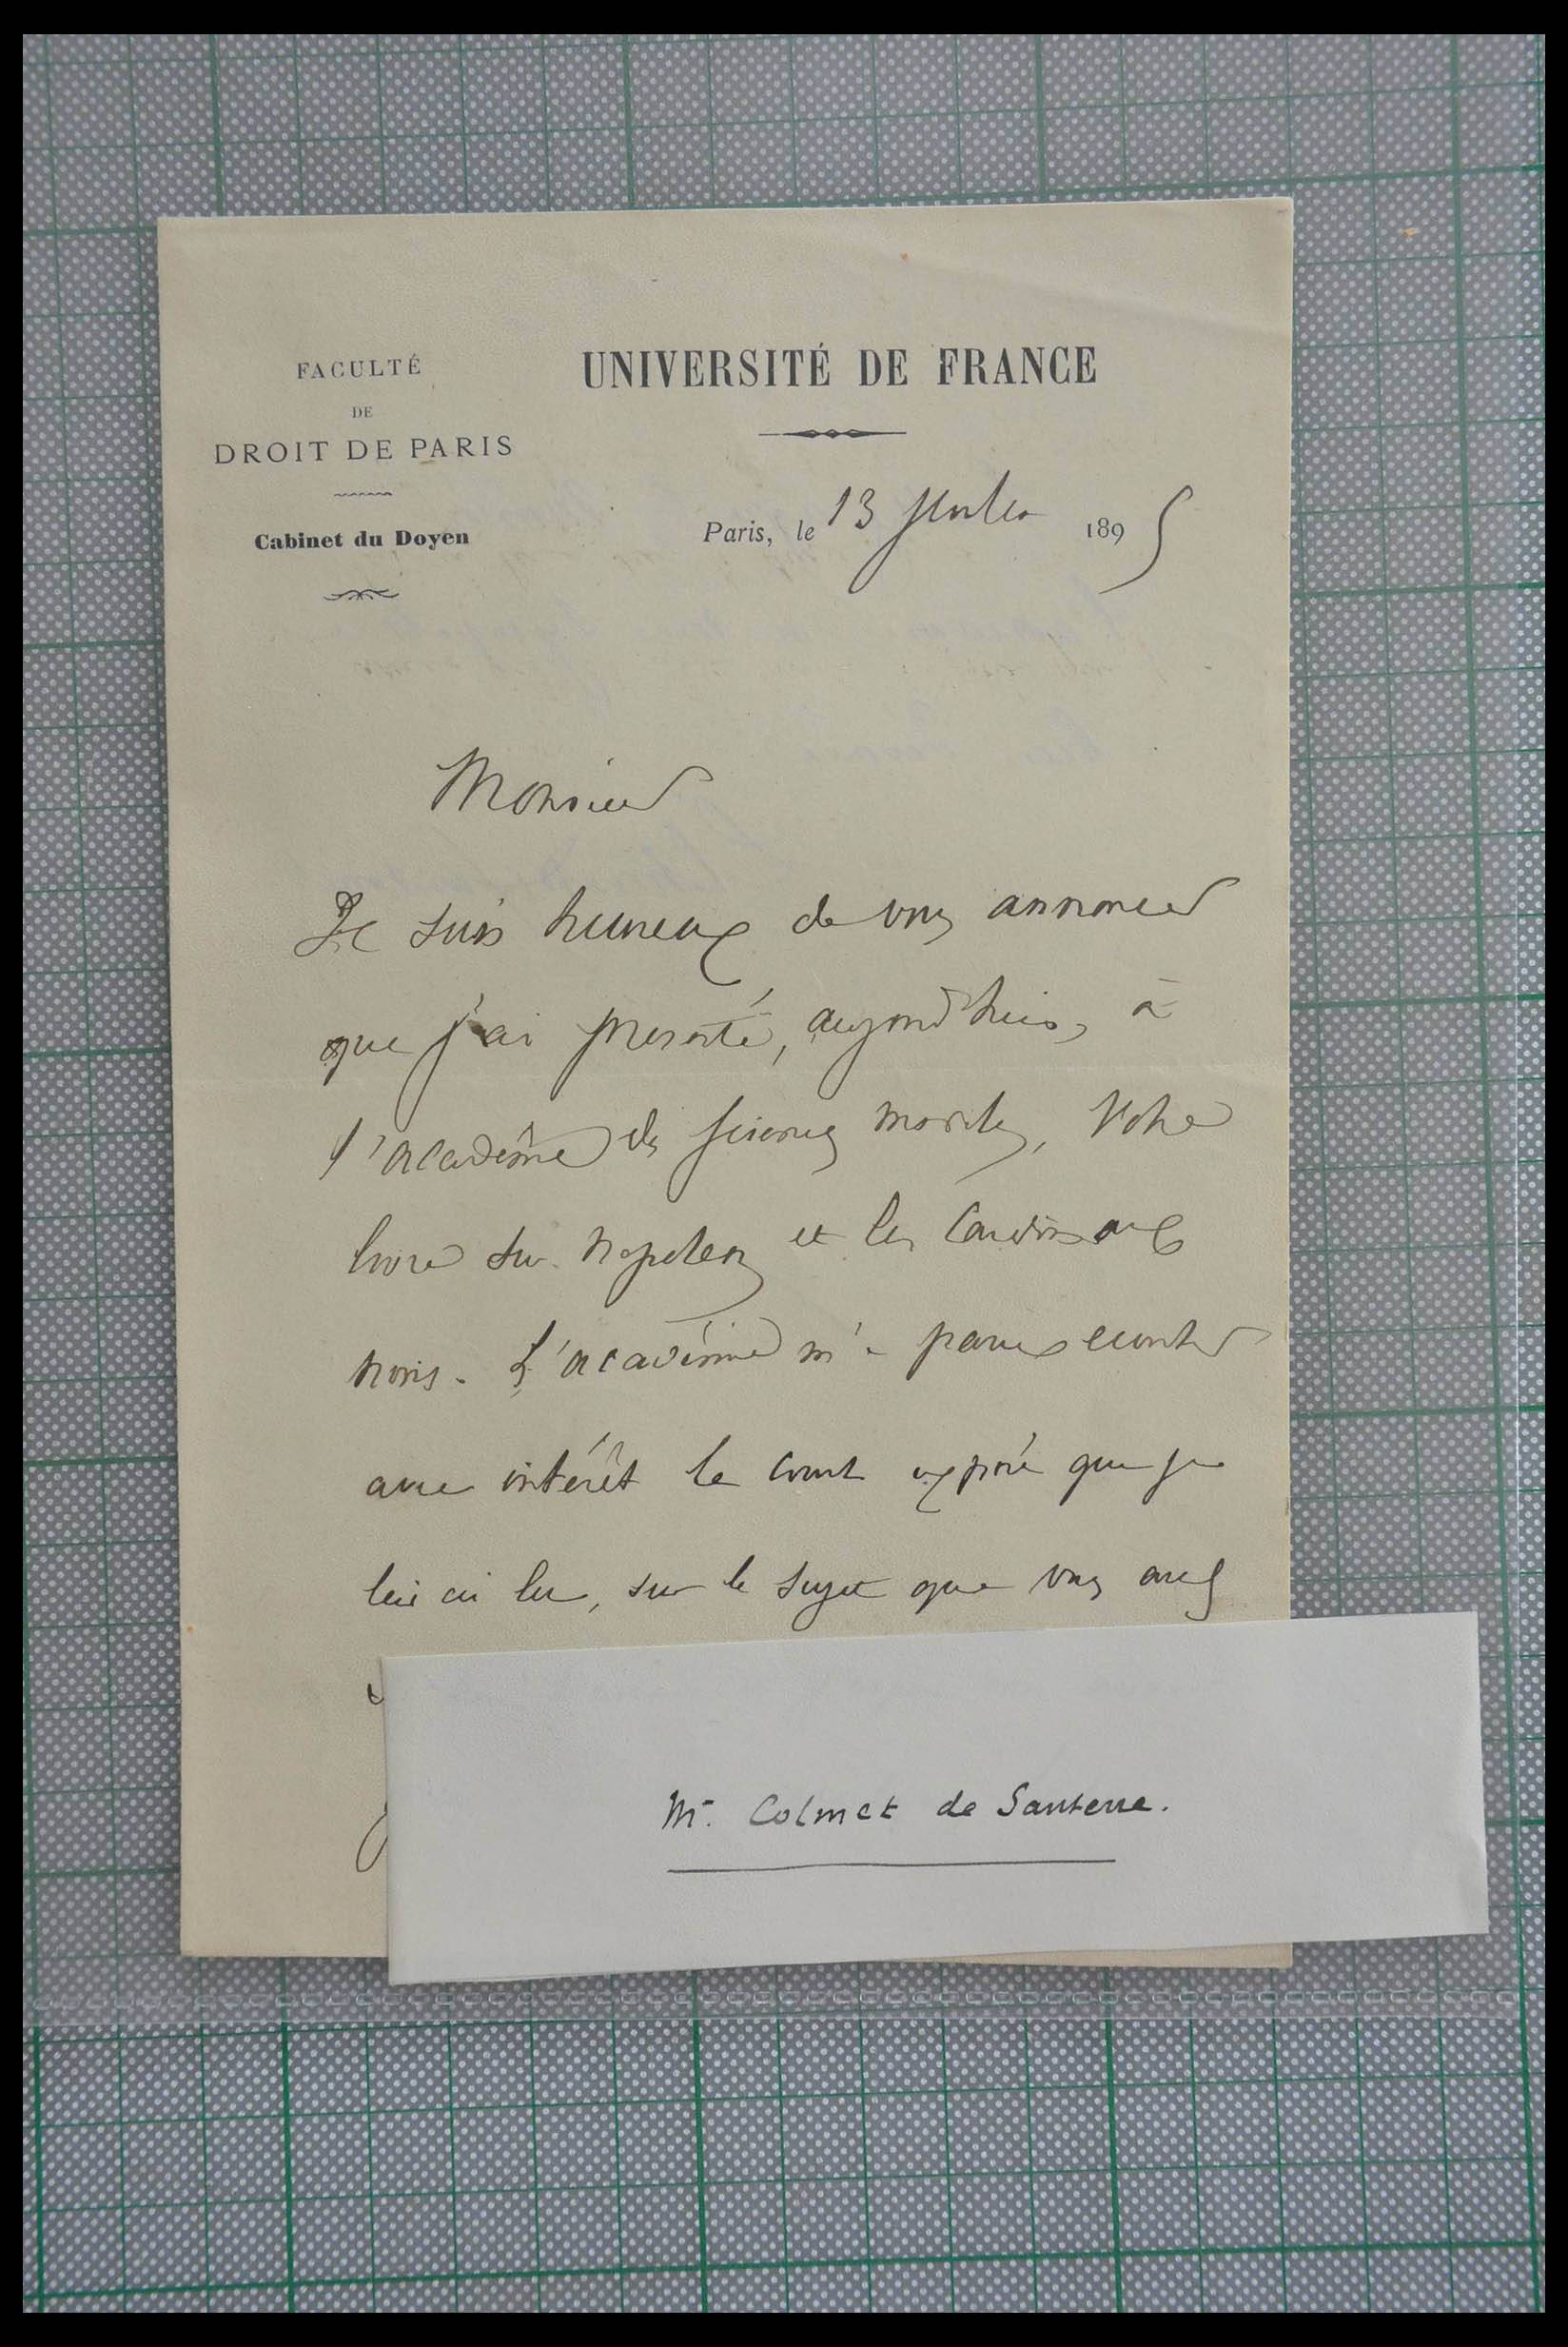 FACULTÉ
DE
DROIT DE PARIS
Cabinet du Doyen
UNIVERSITÉ DE FRANCE
Paris, le 13 juillet 1895
Monsieur
Je suis heureux de vous annoncer
que j'ai présenté, aujourd'hui, à
l'académie des sciences morales, votre
livre sur Napoléon et les Cardinaux
noirs. L'académie m'a paru écouter
avec intérêt le court exposé que je
lui ai lu, sur le sujet que vous avez
Mr. Colmet de Santerre.